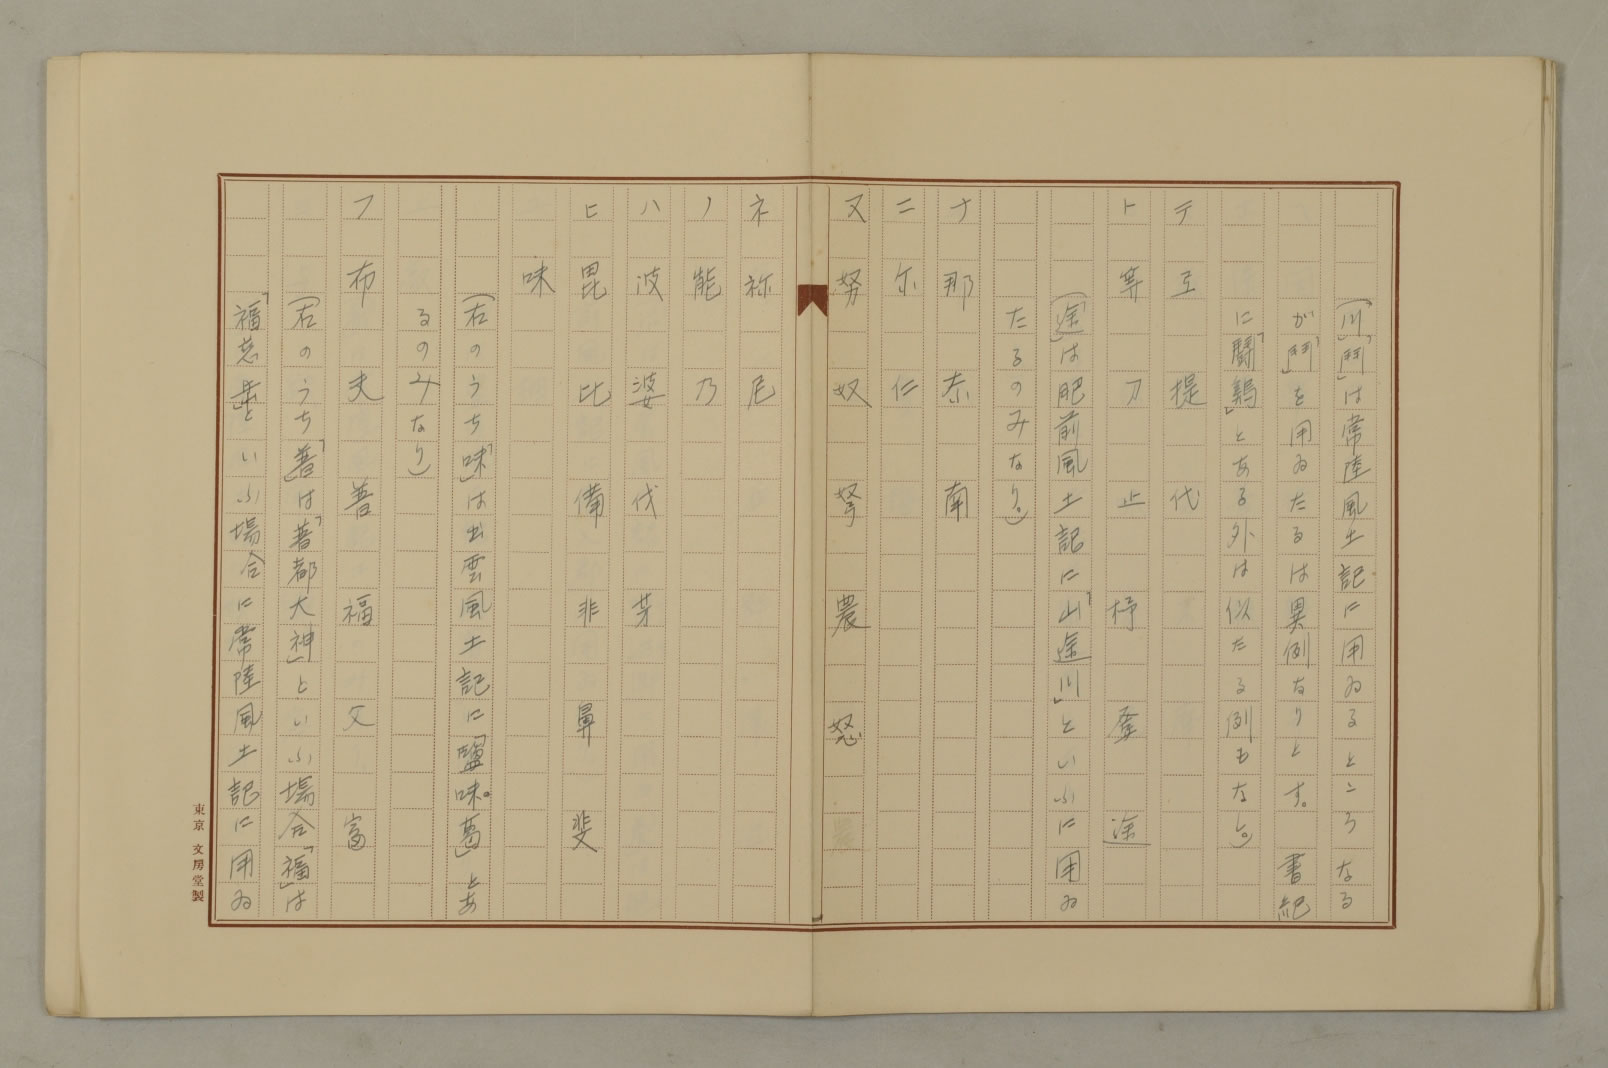 (「川」「鬥」は常陸風土記に用ゐるところなる
が「鬥」を用ゐたるは異例なりとす。 書紀
に「鬪鷄」とある外は似たる例もなし。)
テ 互 提 代
ト 等 刀 止 杼 度 途
(「途」は肥前風土記に「山途川」といふに用ゐ
たるのみなり。)
ナ 那 奈 南
ニ 尓 仁
ヌ 努 奴 弩 農 怒
ネ 祢 尼
ノ 能 乃
ハ 波 婆 伐 芳
ヒ 毘 比 備 非 鼻 斐
味
(右のうち「味」は出雲風土記に「鹽味葛」とあ
るのみなり)
フ 布 夫 菩 福 父 富
(右のうち「菩」は「菩都大神」といふ場合「福」は
「福慈岳」といふ場合に常陸風土記に用ゐ
東京 文房堂製